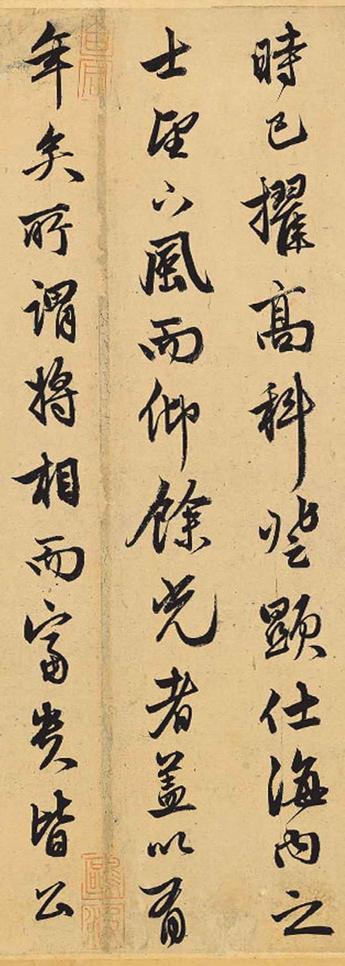 時已擢髙科登顯仕海内之
士望下風而仰餘光者蓋以有
年矣所謂將相而富貴皆公